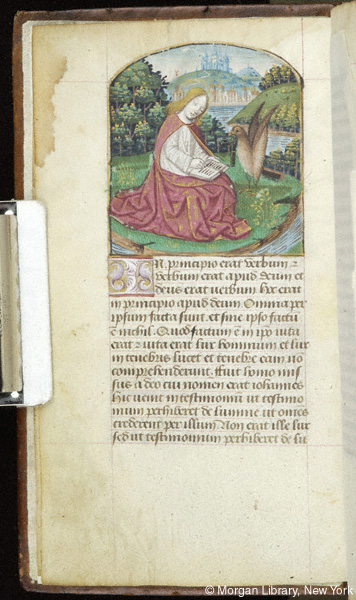 IN principio erat verbum z
verbum erat apud deum et
deus erat verbum hoc erat
in principio apud deum Omnia per
ipsum facta sunt et sine ipso factū
ē nichil Quod factum ē in ipō vita
erat z vita erat lux hominum et lux
in tenebris lucet et tenebre eam nō
comprehenderunt ffuit homo mis
sus a deo cui nomen erat iohannes
Hic venit in testimoniū ut testimo
nium perhiberet de lumine ut omēs
crederent per illum Non erat ille lux
sed ut testimonium perhiberet de lu
© Morgan Library, New York